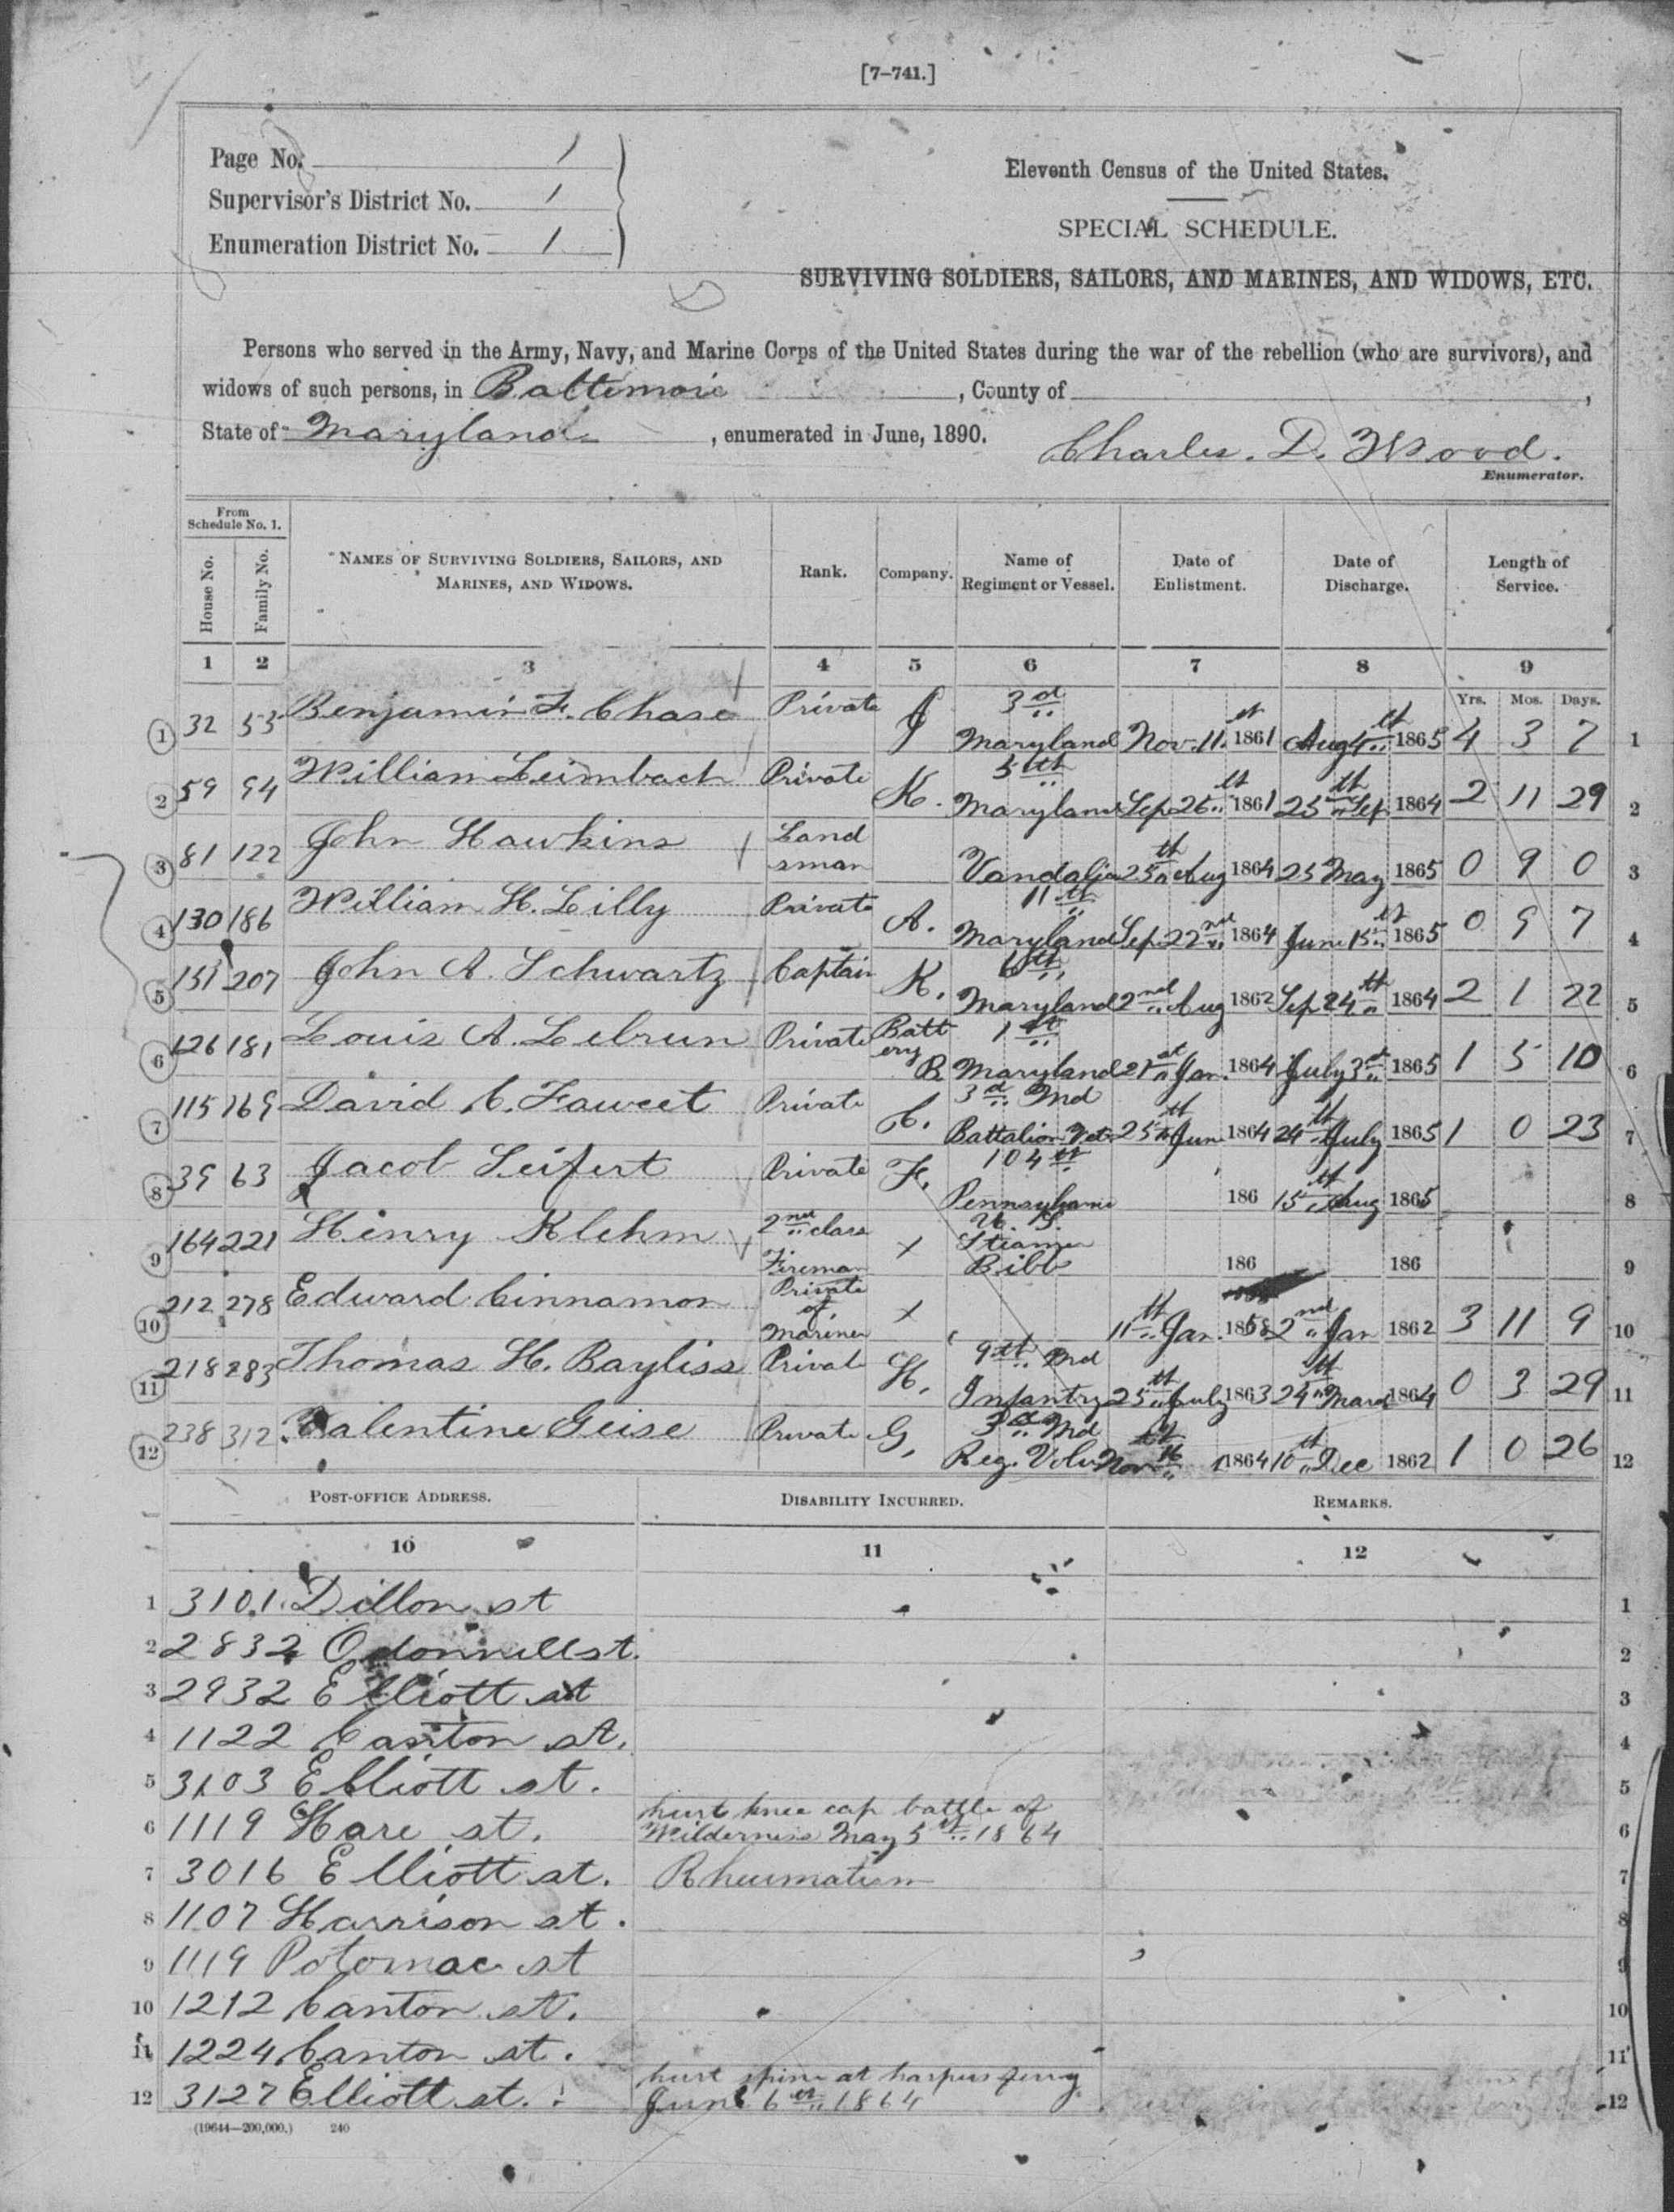 [7-741.]
Page No. 1
Supervisor's District No. 1
Enumeration District No. 1
Eleventh Census of the United States.
SPECIAL SCHEDULE.
SURVIVING SOLDIERS, SAILORS, AND MARINES, AND WIDOWS, ETC.
Persons who served in the Army, Navy, and Marine Corps of the United States during the war of the rebellion (who are survivors), and
widows of such persons, in Baltimore, County of ,
State of Maryland, enumerated in June, 1890. Charles. D. Wood.
Enumerator.
From Schedule No. 1.
House No. Family No. NAMES OF SURVIVING SOLDIERS, SAILORS, AND MARINES, AND WIDOWS. Rank. Company. Name of Regiment or Vessel. Date of Enlistment. Date of Discharge. Length of Service.
1 2 3 4 5 6 7 8 9
Yrs. Mos. Days.
1 32 53 Benjamin F. Chase Private 3d Maryland Nov. 11. 1861 Aug 1865 4 3 7 1
2 59 94 William Leimbach Private K. 5th Maryland Sep 26 1861 25th Sep 1864 2 11 29 2
3 81 122 John Hawkins Landsman Vandalia 25th Aug 1864 25 May 1865 0 9 0 3
4 130 186 William H. Lilly Private A. 11th Maryland Sep 22nd 1864 June 15th 1865 0 9 7 4
5 151 207 John A. Schwartz Captain K. 6th Maryland 2nd Aug 1862 Sep 24th 1864 2 1 22 5
6 126 181 Louis A. Lebrun Private Battery B. 1st Maryland 21st Jan. 1864 July 3d 1865 1 5 10 6
7 115 169 David C. Fawcet Private C. 3d Md Battalion Vet 25th Jun 1864 24th July 1865 1 0 23 7
8 39 63 Jacob Seifert Private F. 104th Pennsylvania 186 15th Aug 1865 8
9 164 221 Henry Klehm 2nd class Fireman X U. S. Steamer Bibb 186 186 9
10 212 278 Edward Cinnamon Private of Marines X 11th Jan. 1858 2nd Jan 1862 3 11 9 10
11 218 283 Thomas H. Bayliss Privat H. 9th Md Infantry 25th July 1863 24th Marc 1864 0 3 29 11
12 238 312 Valentine Geise Private G. 3d Md Reg. Volu Nov 16 1864 10th Dec 1862 1 0 26 12
POST-OFFICE ADDRESS. DISABILITY INCURRED. REMARKS.
10 11 12
1 3101 Dillon st 1
2 2832 Odonnell st. 2
3 2932 Elliott st 3
4 1122 Canton st. 4
5 3103 Elliott st. 5
6 1119 Hare st. hurt knee cap battle of Wilderness May 5th 1864 6
7 3016 Elliott st. Rheumatism 7
8 1107 Harrison st. 8
9 1119 Potomac st 9
10 1212 Canton st. 10
11 1224 Canton st. 11
12 3127 Elliott st. hurt spine at harpers ferry June 6th 1864 12
(19644—200,000.) 240